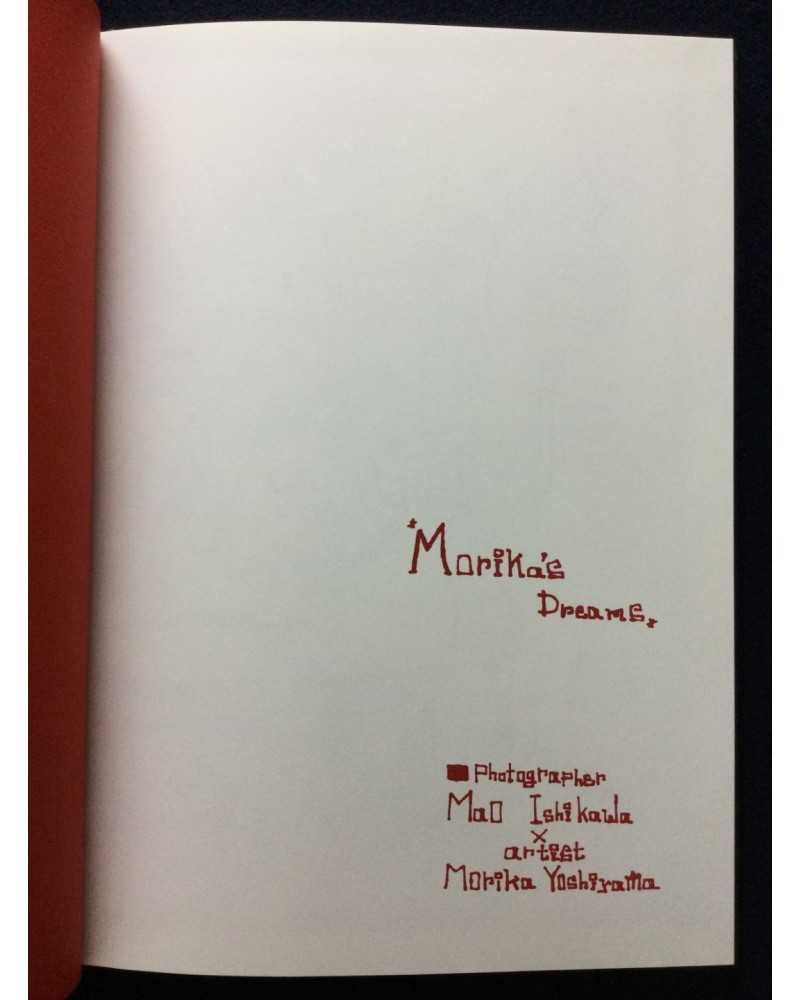 "Morika's
Dreams"
■Photographer
Mao Ishikawa
×
artist
Morika Yoshiyama